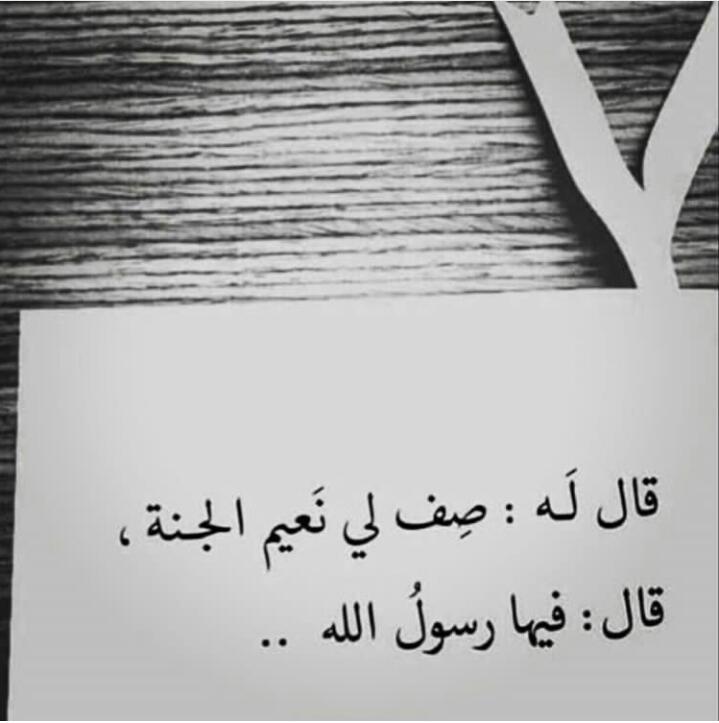 قال لَـه : صِف لي نَعيم الجـنة ،
قال: فيها رسولُ الله ..